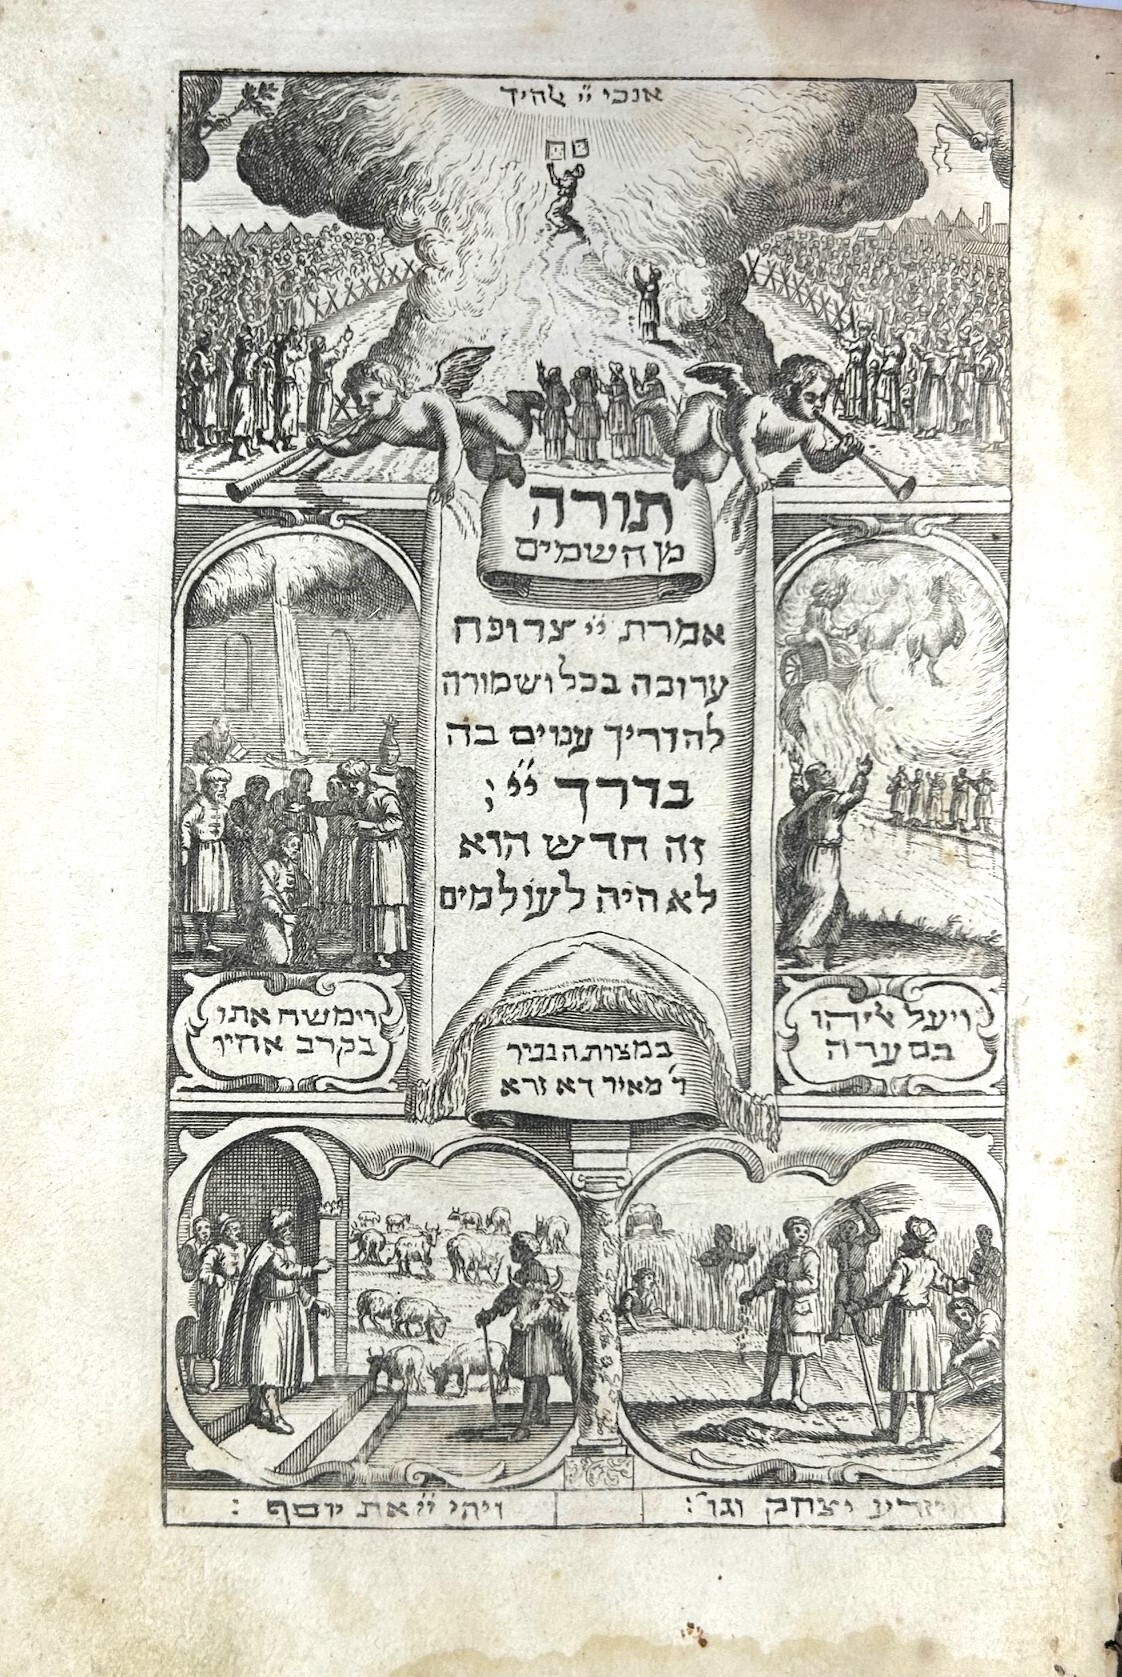 אנכי יי אלהיך
תורה
מן השמים
אמרת יי צרופה
ערוכה בכל ושמורה
להדריך ענוים בה
בדרך יי ;
זה חדש הוא
לא היה לעולמים
וימשח אתו
בקרב אחיו
ויעל אליהו
בסערה
במצות הגביר
ר' מאיר דא זרא
ויזרע יצחק וגו':
ויהי יי את יוסף :